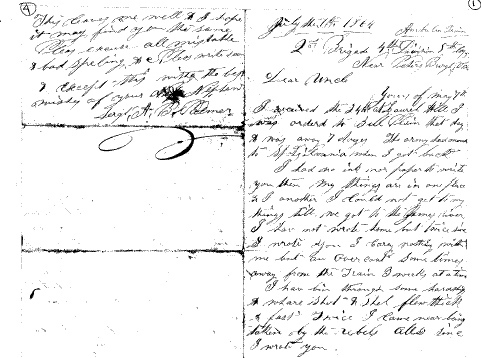 1
July the 11th 1864
Ambulan Train
2nd Brigade 4th Division 5th Corps
Near Petersburg Va
Dear Uncle
Yours of May 7th
I received the 24th at Laurel Hill I
was orderd to Bell Plain that day
& was away 7 dayes The army had moved
to Spotsilvania when I got back
I had no ink nor paper to write
you then My things are in one place
& I another I could not get to my
things till we got to the James River
I have not wrote home but twice since
I wrote you I carry nothing with
me but an Over coat Some times
away from the Train 3 weeks at a time
I have bin through some
& whare shot & shel flew thick
& fast Twice I came near being
taken by the rebels Allso since
I wrote you
4
This leaves me well & I hope
it may find you the same
Pleas excuse all mistakes
& bad speling & Pleas write soon
& except this with the best
wishes of your Nephew
Sergt A. B. Palmer